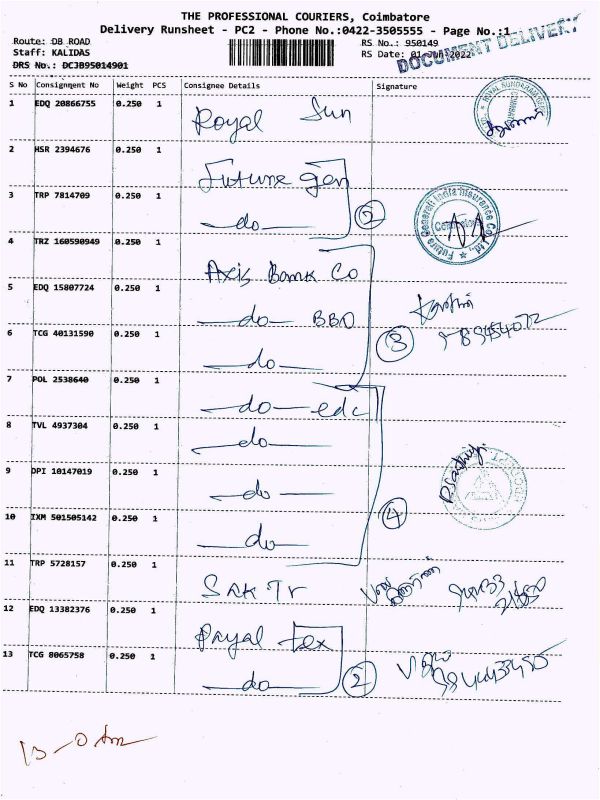 THE PROFESSIONAL COURIERS, Coimbatore
Delivery Runsheet - PC2 - Phone No.:0422-3505555 - Page No.:1
Route: DB ROAD
RS No.: 950149
Staff: KALIDAS
RS Date: 01-Jun-2022
DOCUMENT DELIVERY
DRS No.: DC3B95014901
S No Consignment No Weight PCS Consignee Details Signature
1 EDQ 20866755 0.250 1 Royal Sun
2 HSR 2394676 0.250 1 Future Gen
3 TRP 7814709 0.250 1 do 2
Future Generali India Insurance Co. Ltd.
4 TRZ 160590949 0.250 1 Axis Bank Co
5 EDQ 15807724 0.250 1 do BBD
6 TCG 40131590 0.250 1 do 3
7 POL 2538640 0.250 1 do edc
8 TVL 4937304 0.250 1 do
9 DPI 10147019 0.250 1 do
10 IXM 501505142 0.250 1 do 4
11 TRP 5728157 0.250 1 SAK Tr
12 EDQ 13382376 0.250 1 Royal tex
13 TCG 8065758 0.250 1 do 2